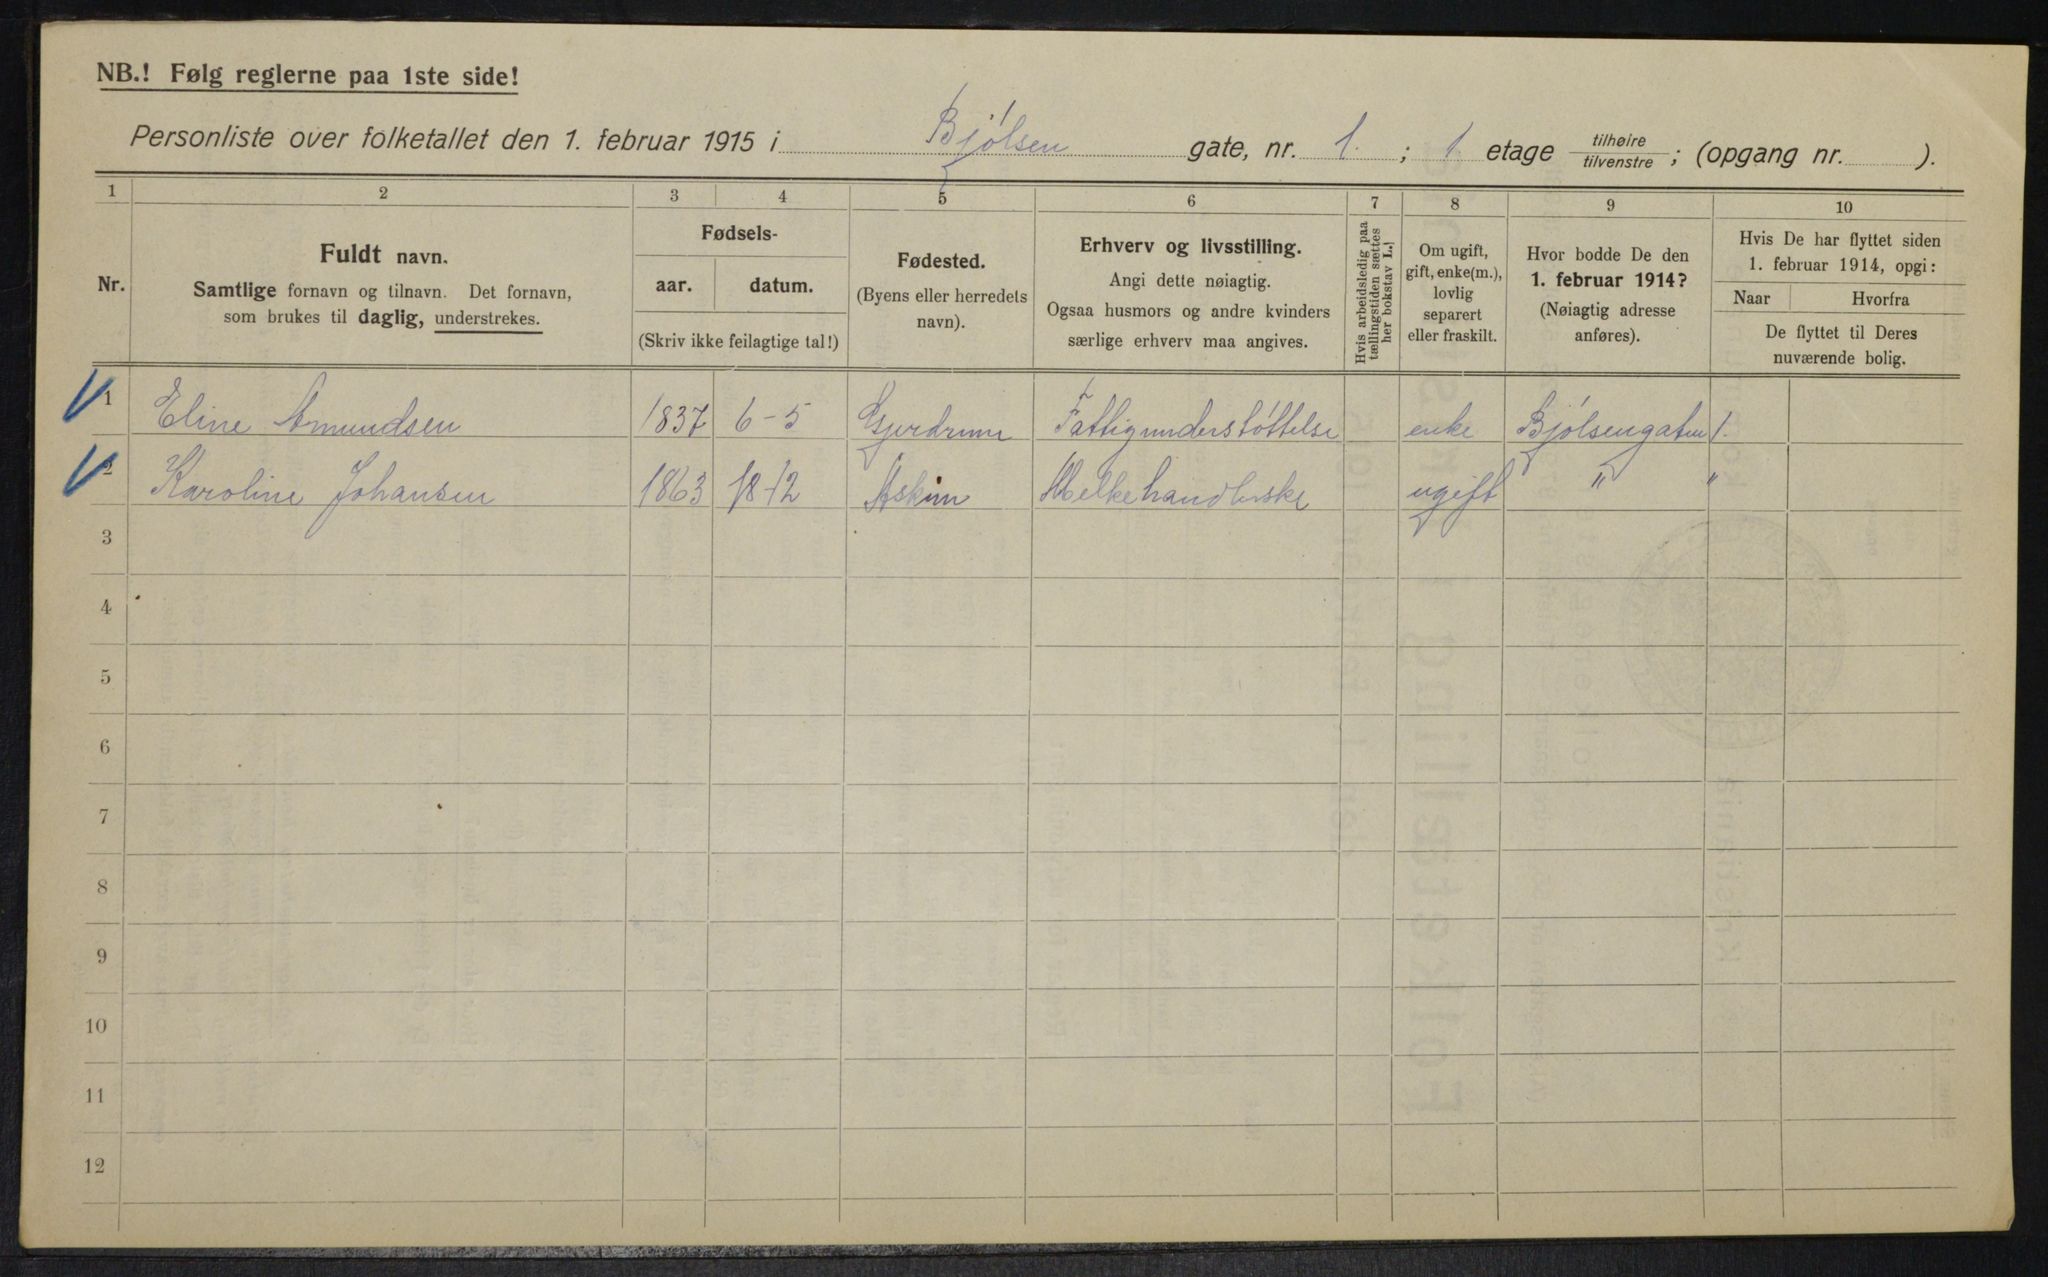 NB.! Følg reglerne paa 1ste side!
Personliste over folketallet den 1. februar 1915 i Bjölsen gate, nr. 1. ; 1. etage tilhøire / tilvenstre ; (opgang nr. ).
1 2 3 4 5 6 7 8 9 10
Nr.
Fuldt navn.
Samtlige fornavn og tilnavn. Det fornavn,
som brukes til daglig, understrekes.
Fødsels-
aar. datum.
(Skriv ikke feilagtige tal!)
Fødested.
(Byens eller herredets
navn).
Erhverv og livsstilling.
Angi dette nøiagtig.
Ogsaa husmors og andre kvinders
særlige erhverv maa angives.
Hvis arbeidsledig paa
tællingstiden sættes
her bokstav L.!
Om ugift,
gift, enke(m.),
lovlig
separert
eller fraskilt.
Hvor bodde De den
1. februar 1914?
(Nøiagtig adresse
anføres).
Hvis De har flyttet siden
1. februar 1914, opgi:
Naar Hvorfra
De flyttet til Deres
nuværende bolig.
1 Eline Amundsen 1837 6-5 Gjerdrum Fattigunderstöttelse enke Bjölsengaten 1.
2 Karoline Johansen 1863 18-12 Askim Melkehandlerske ugift " "
3
4
5
6
7
8
9
10
11
12